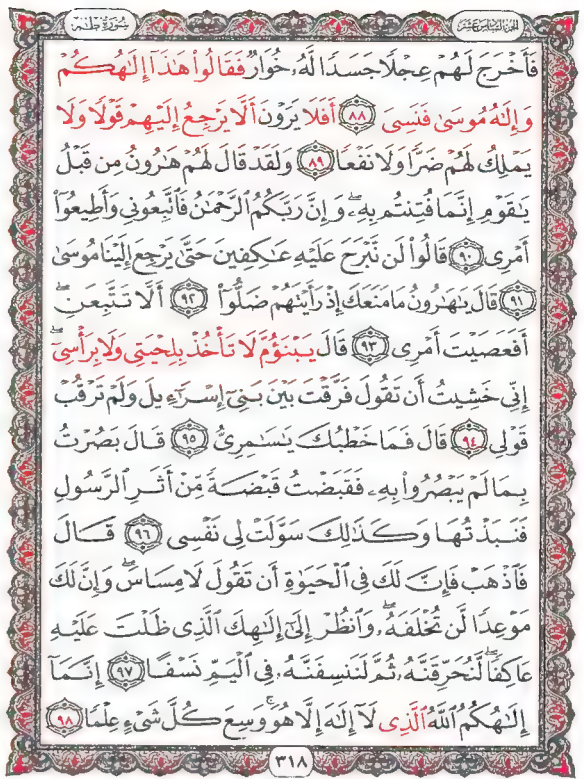 سُورَةُ طه
الجزء السادس عشر
فَأَخْرَجَ لَهُمْ عِجْلًا جَسَدًا لَّهُۥ خُوَارٌ فَقَالُوا۟ هَٰذَآ إِلَٰهُكُمْ
وَإِلَٰهُ مُوسَىٰ فَنَسِىَ ٨٨ أَفَلَا يَرَوْنَ أَلَّا يَرْجِعُ إِلَيْهِمْ قَوْلًا وَلَا
يَمْلِكُ لَهُمْ ضَرًّا وَلَا نَفْعًا ٨٩ وَلَقَدْ قَالَ لَهُمْ هَٰرُونُ مِن قَبْلُ
يَٰقَوْمِ إِنَّمَا فُتِنتُم بِهِۦ ۖ وَإِنَّ رَبَّكُمُ ٱلرَّحْمَٰنُ فَٱتَّبِعُونِى وَأَطِيعُوٓا۟
أَمْرِى ٩٠ قَالُوا۟ لَن نَّبْرَحَ عَلَيْهِ عَٰكِفِينَ حَتَّىٰ يَرْجِعَ إِلَيْنَا مُوسَىٰ
٩١ قَالَ يَٰهَٰرُونُ مَا مَنَعَكَ إِذْ رَأَيْتَهُمْ ضَلُّوٓا۟ ٩٢ أَلَّا تَتَّبِعَنِ ۖ
أَفَعَصَيْتَ أَمْرِى ٩٣ قَالَ يَبْنَؤُمَّ لَا تَأْخُذْ بِلِحْيَتِى وَلَا بِرَأْسِىٓ ۖ
إِنِّى خَشِيتُ أَن تَقُولَ فَرَّقْتَ بَيْنَ بَنِىٓ إِسْرَٰٓءِيلَ وَلَمْ تَرْقُبْ
قَوْلِى ٩٤ قَالَ فَمَا خَطْبُكَ يَٰسَٰمِرِىُّ ٩٥ قَالَ بَصُرْتُ
بِمَا لَمْ يَبْصُرُوا۟ بِهِۦ فَقَبَضْتُ قَبْضَةً مِّنْ أَثَرِ ٱلرَّسُولِ
فَنَبَذْتُهَا وَكَذَٰلِكَ سَوَّلَتْ لِى نَفْسِى ٩٦ قَالَ
فَٱذْهَبْ فَإِنَّ لَكَ فِى ٱلْحَيَوٰةِ أَن تَقُولَ لَا مِسَاسَ ۖ وَإِنَّ لَكَ
مَوْعِدًا لَّن تُخْلَفَهُۥ ۖ وَٱنظُرْ إِلَىٰٓ إِلَٰهِكَ ٱلَّذِى ظَلْتَ عَلَيْهِ
عَاكِفًا ۖ لَّنُحَرِّقَنَّهُۥ ثُمَّ لَنَنسِفَنَّهُۥ فِى ٱلْيَمِّ نَسْفًا ٩٧ إِنَّمَآ
إِلَٰهُكُمُ ٱللَّهُ ٱلَّذِى لَآ إِلَٰهَ إِلَّا هُوَ ۚ وَسِعَ كُلَّ شَىْءٍ عِلْمًا ٩٨
٣١٨